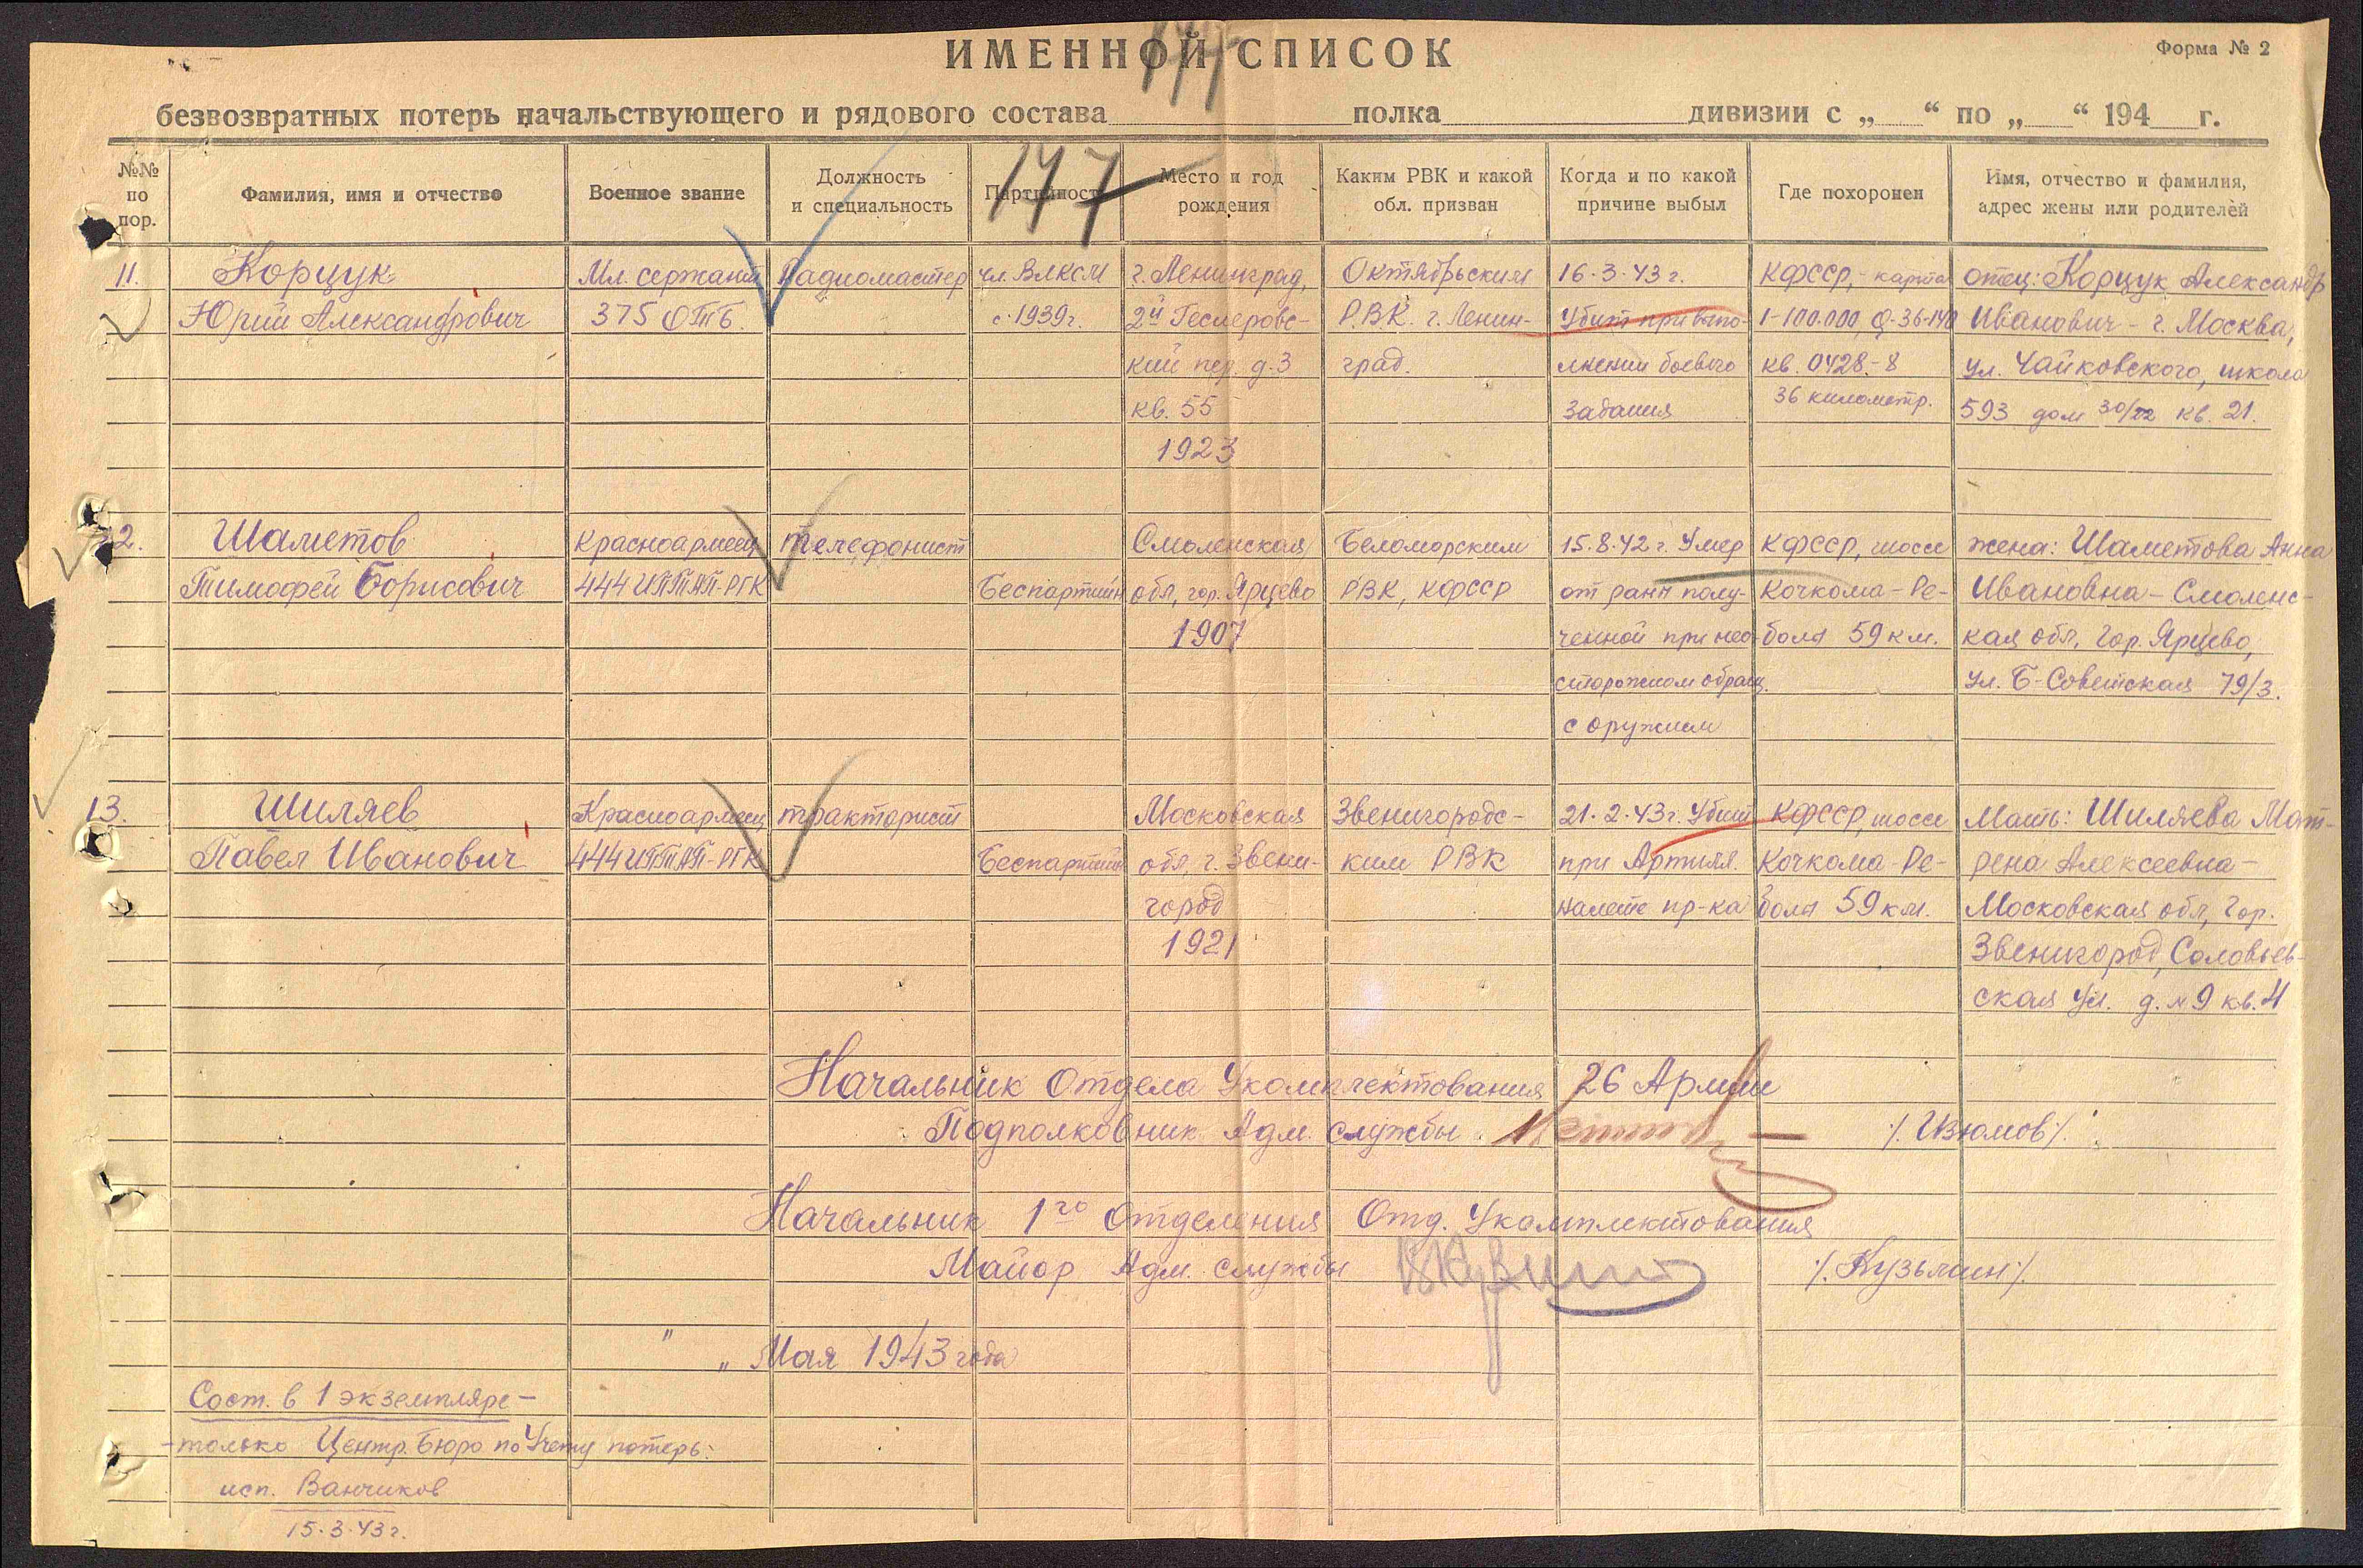 177
ИМЕННОЙ СПИСОК
Форма № 2
безвозвратных потерь начальствующего и рядового состава полка дивизии с „ “ по „ “ 194 г.
177
№№ по пор.
Фамилия, имя и отчество
Военное звание
Должность и специальность
Партийность
Место и год рождения
Каким РВК и какой обл. призван
Когда и по какой причине выбыл
Где похоронен
Имя, отчество и фамилия, адрес жены или родителей
11. Корцук Мл. сержант Радиомастер чл. ВЛКСМ г. Ленинград, Октябрьским 16.3.43 г. КФССР,- карта отец: Корцук Александр
Юрий Александрович 375 ОТБ. с 1939г. 2й Геслеровс- РВК. г. Ленин- Убит при выпо- 1-100.000, Q-36-140 Иванович - г. Москва,
кий пер. д. 3 град. лнении боевого кв. 0428-8 ул. Чайковского, школа
кв. 55 задания 36 километр. 593 дом 30/22 кв. 21.
1923
12. Шаметов Красноармеец телефонист Смоленская Беломорским 15.8.42 г. Умер КФССР, шоссе жена: Шаметова Анна
Тимофей Борисович 444 ИПТАП-РГК Беспартийн обл, гор. Ярцево РВК, КФССР от ран полу- Кочкома - Ре- Ивановна - Смоленс-
1907 ченной при нео- бола 59 км. кая обл, гор. Ярцево,
сторожном обращ. ул. Б-Советская 79/3.
с оружием
13. Шиляев Красноармеец тракторист Московская Звенигородс- 21.2.43г. Убит КФССР, шоссе Мать: Шиляева Мат-
Павел Иванович 444 ИПТАП-РГК Беспартийн обл, г. Звени- ким РВК при Артилл. Кочкома - Ре- рена Алексеевна -
город налете пр-ка бола 59 км. Московская обл, гор.
1921 Звенигород, Соловьев-
ская ул. д. № 9 кв. 4
Начальник Отдела Укомплектования 26 Армии
Подполковник Адм. службы /. Изюмов/.
Начальник 1го Отделения Отд. Укомплектования
Майор Адм. службы /. Кузьмин/.
" " Мая 1943 года
Сост. в 1 экземпляре -
- только Центр. Бюро по Учету потерь.
исп. Ванчиков
15.3.43 г.